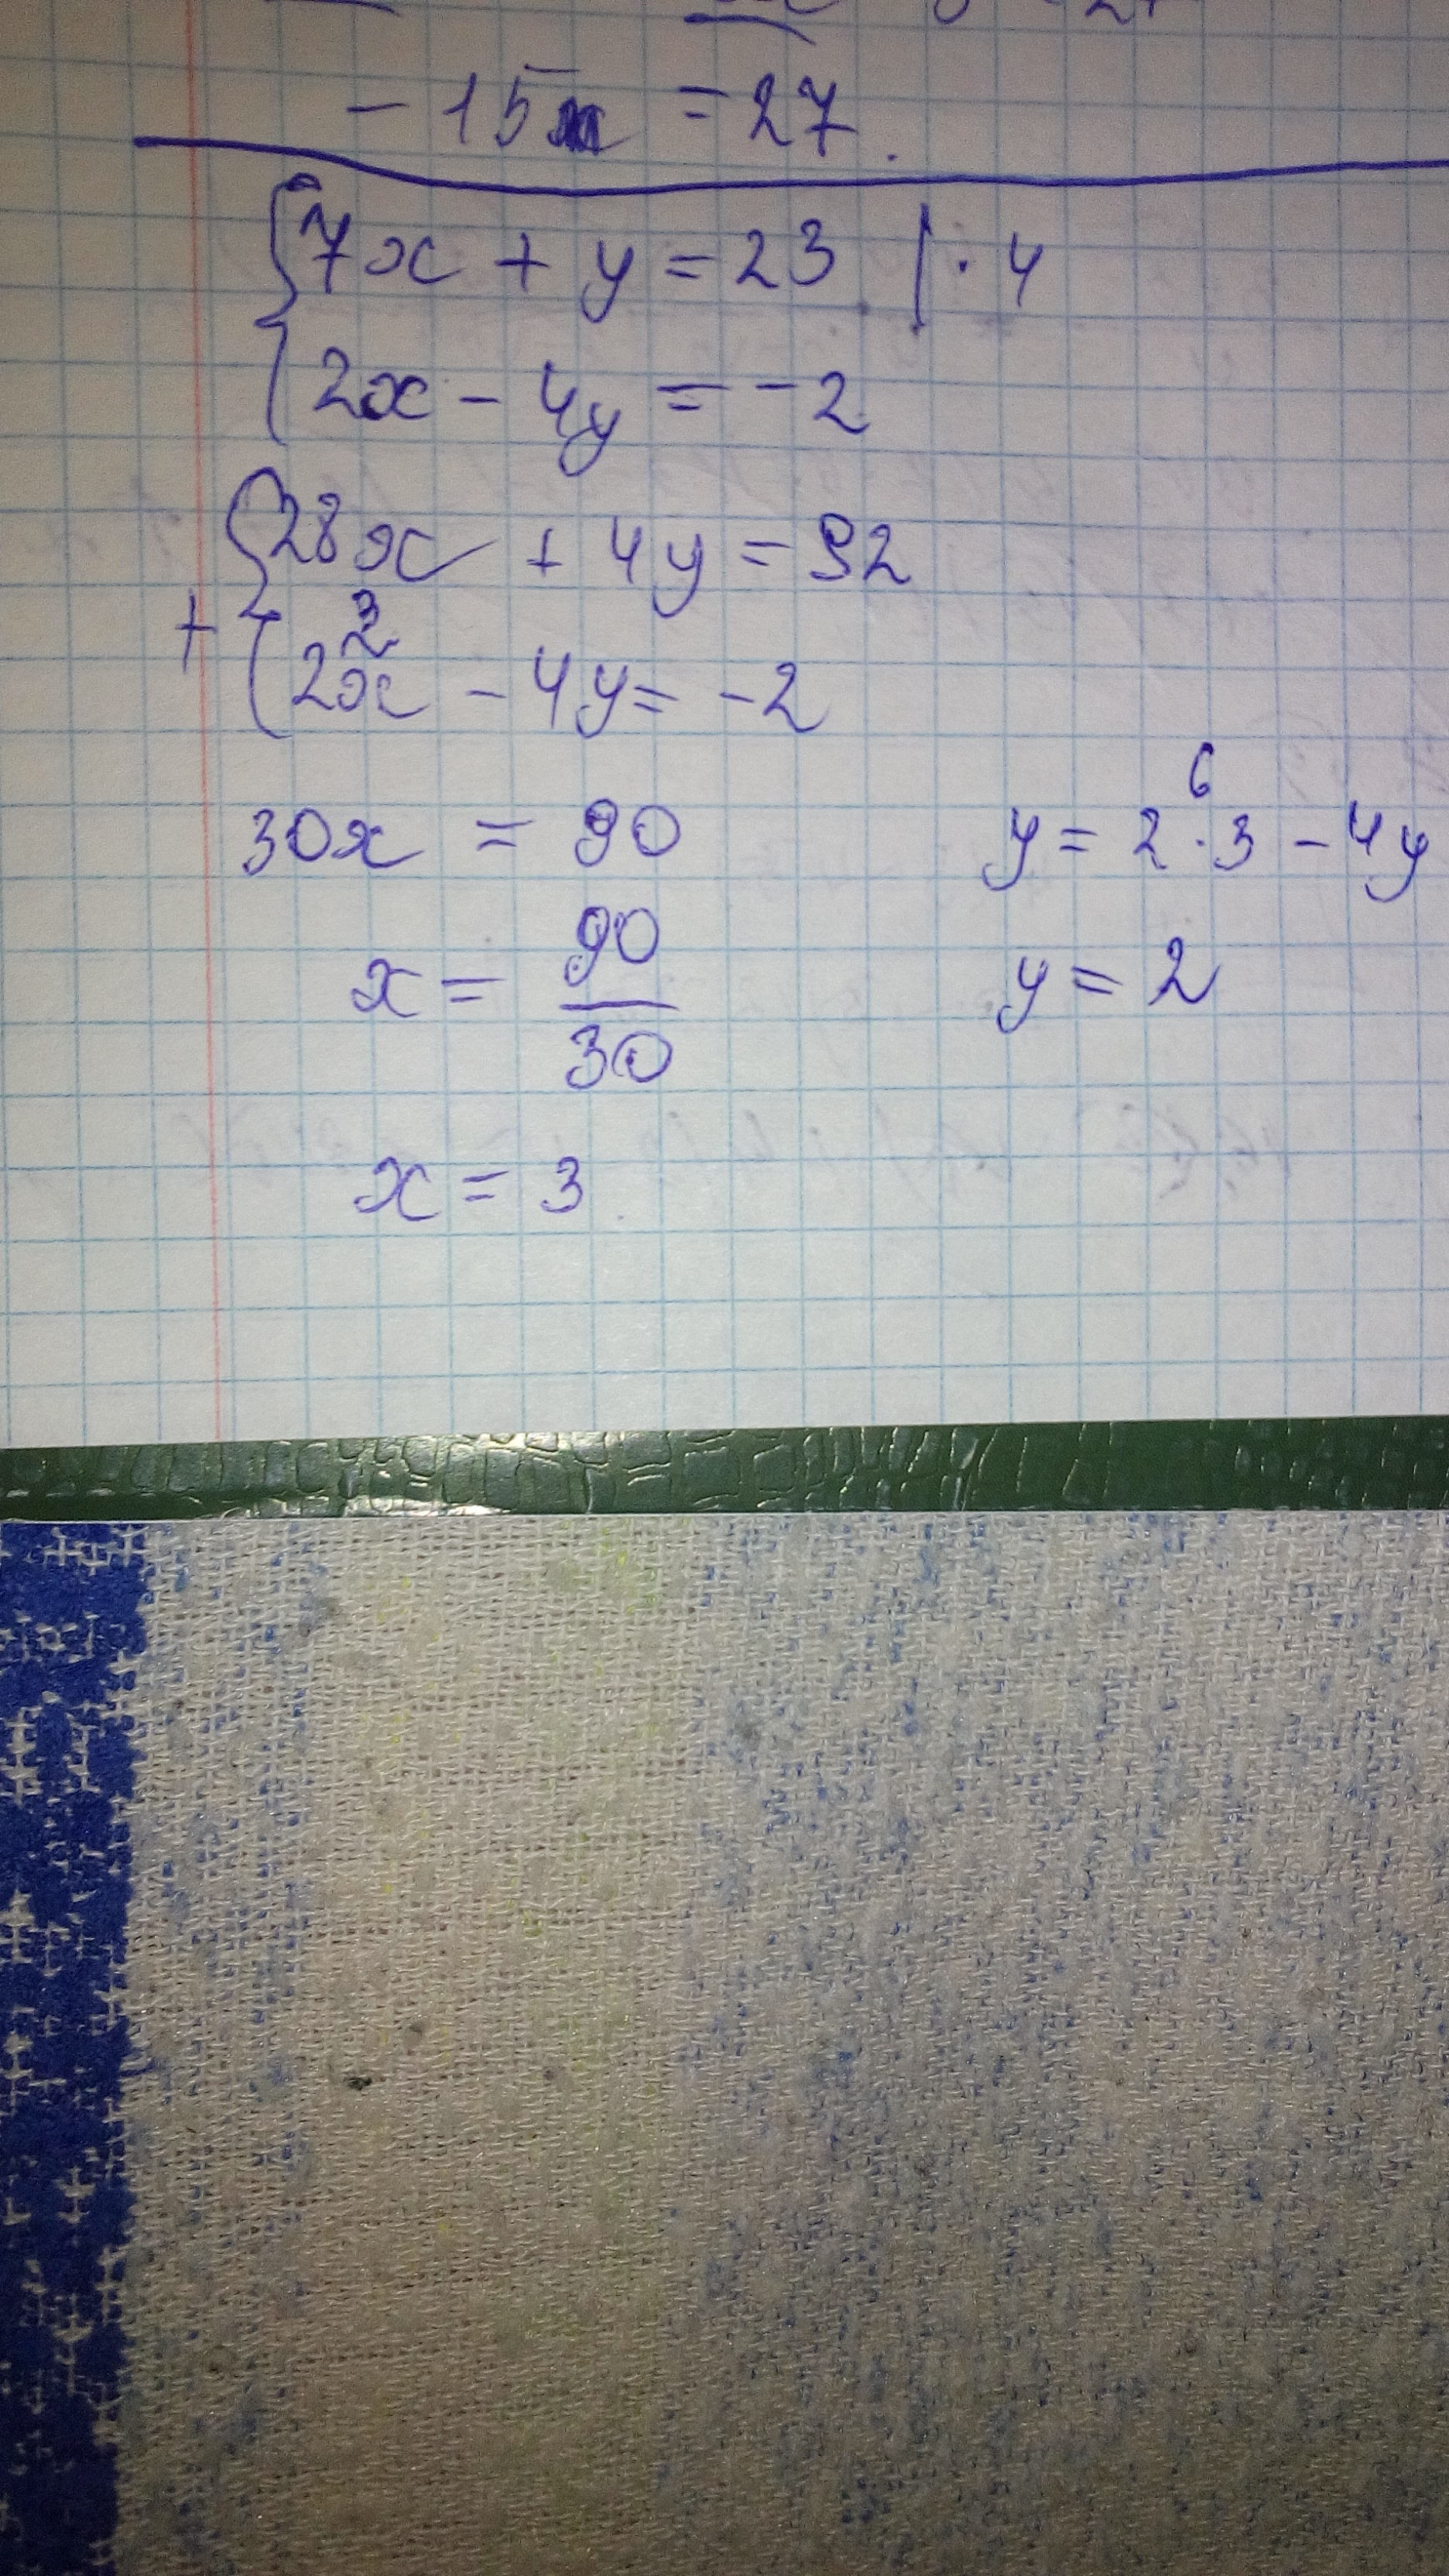 - 15 = 27.
{7x + y = 23 | · 4
{2x - 4y = -2
{28x + 4y = 92
+
3
{2x - 4y = -2
30x = 90
x = 90/30
x = 3
6
y = 2 · 3 - 4y
y = 2